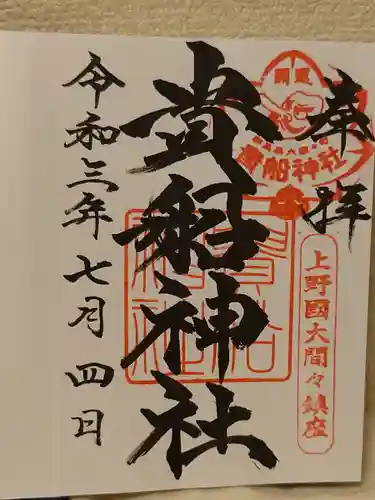 奉拝
開運
貴船神社
上野國大間々鎮座
貴船神社
貴船神社
令和三年七月四日